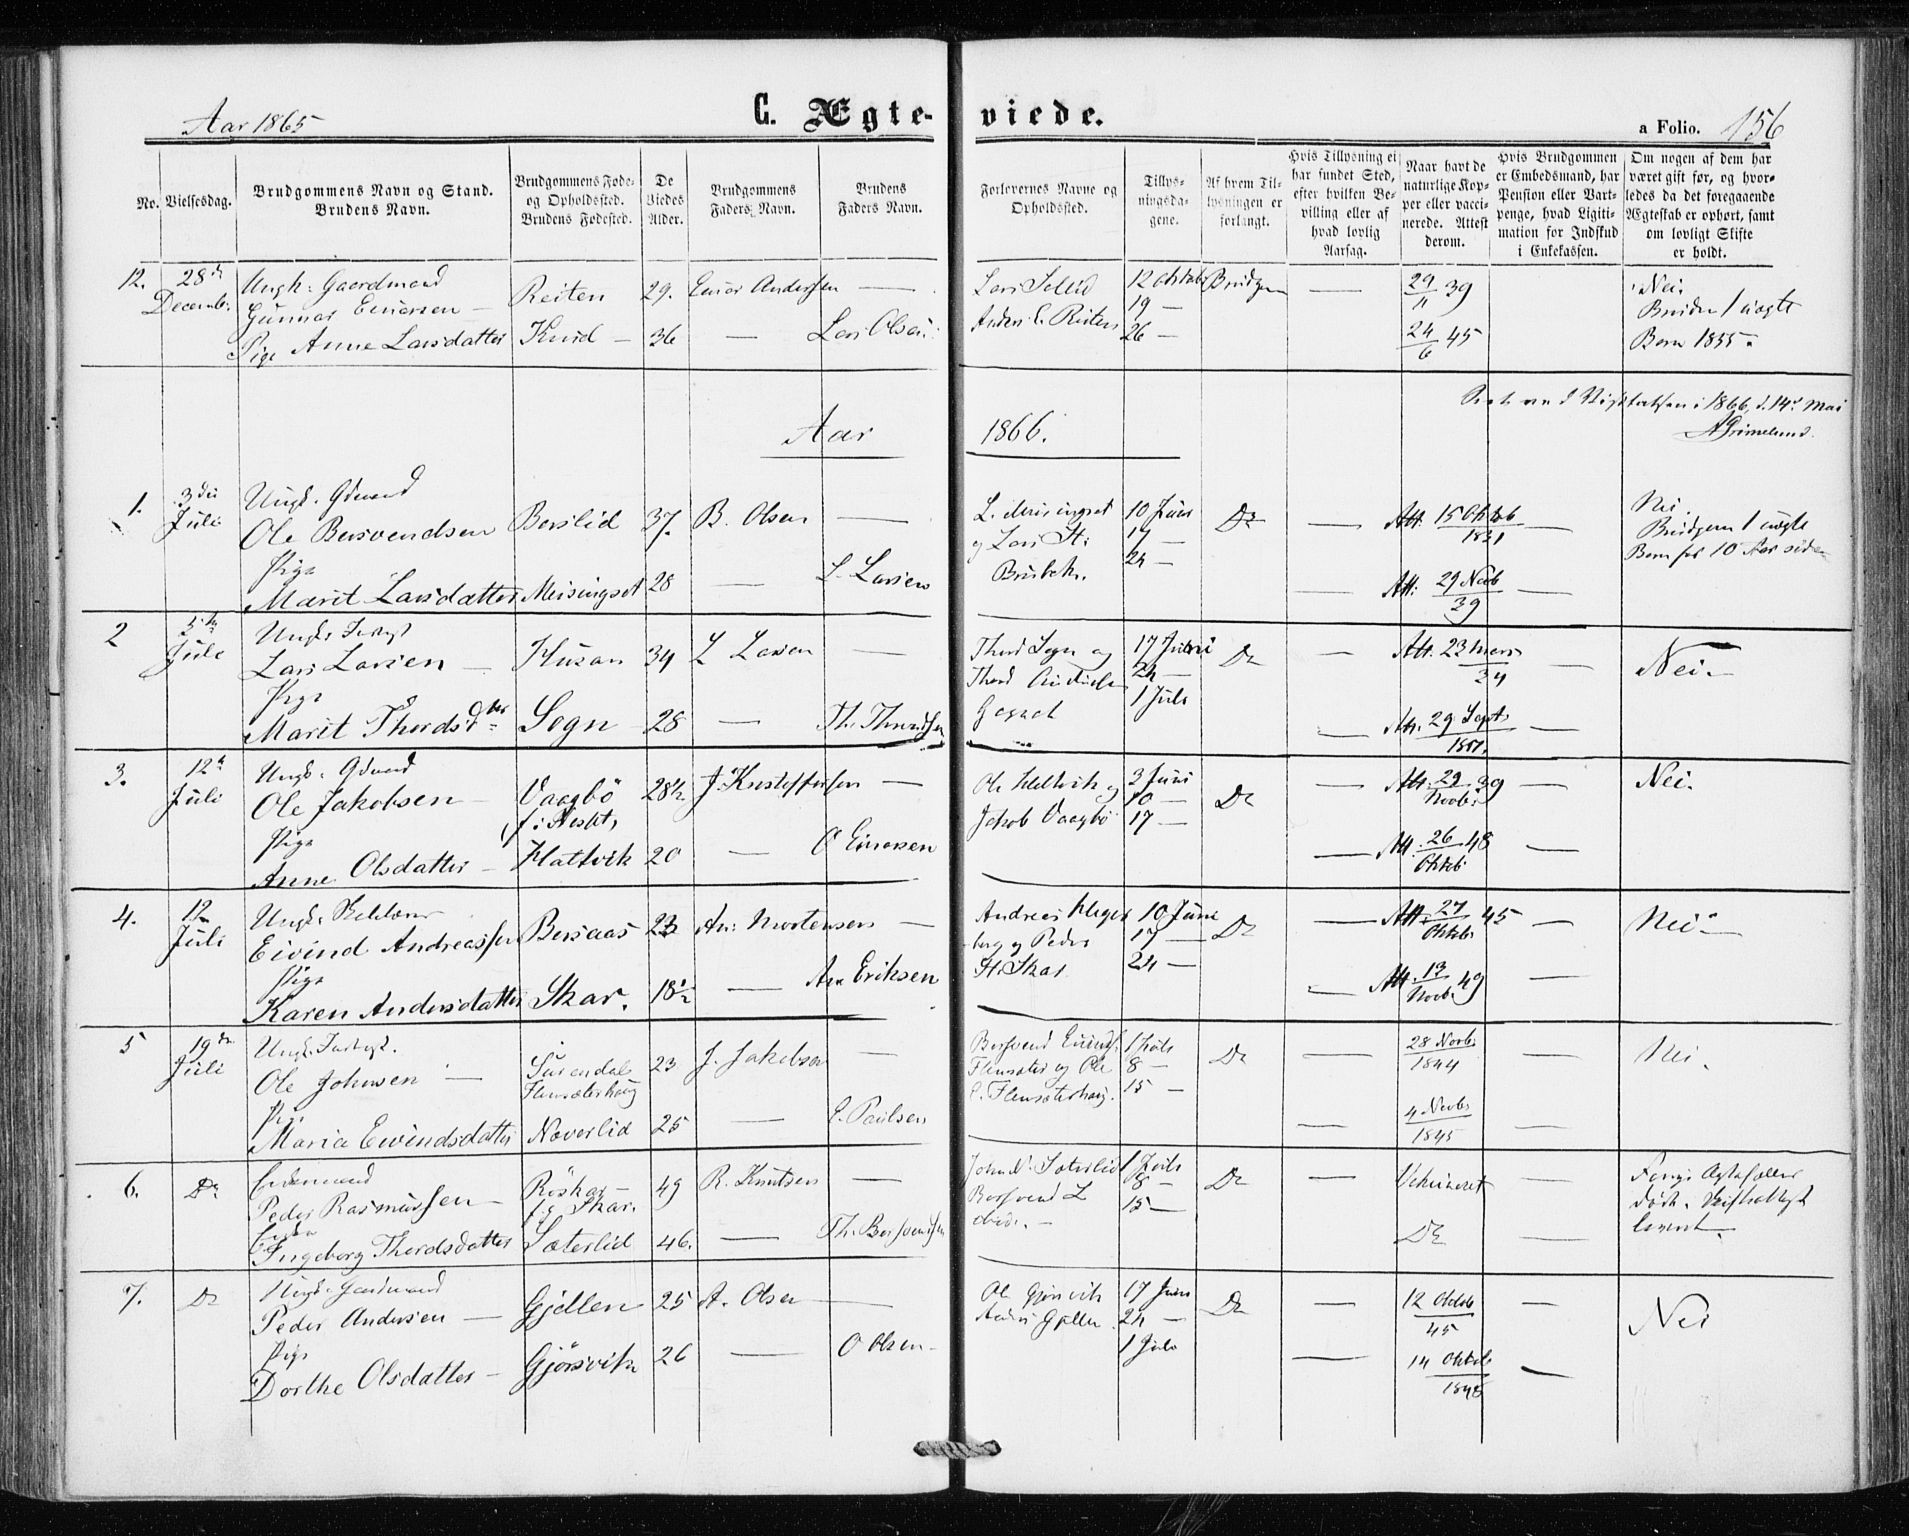 Aar 1865
C. Ægte-
viede.
a Folio. 156
No.
Vielsesdag.
Brudgommens Navn og Stand.
Brudens Navn.
Brudgommens Føde-
og Opholdssted.
Brudens Fødested.
De
Viedes
Alder.
Brudgommens
Faders Navn.
Brudens
Faders Navn.
Forlovernes Navne og
Opholdssted.
Tillys-
ningsda-
gene.
Af hvem Til-
lysningen er
forlangt.
Hvis Tillysning ei
har fundet Sted,
efter hvilken Be-
villing eller af
hvad lovlig
Aarsag.
Naar havt de
naturlige Kop-
per eller vacci-
nerede. Attest
derom.
Hvis Brudgommen
er Embedsmand, har
Pension eller Vart-
penge, hvad Ligiti-
mation for Indskud
i Enkekassen.
Om nogen af dem har
været gift før, og hvor-
ledes da det foregaaende
Ægteskab er ophørt, samt
om lovligt Skifte
er holdt.
12. 28de Ungk. Gaardmand
Decemb. Gunnar Einersen — Reiten 29. Einar Andersen —
Pige Anne Larsdatter Knud — 36 — Lars Olsen
Lars 12 Oktob Brudgm — 29/11 39 Nei.
Anders E. Reiten 19 — Bruden 1 uægte
26 — 24/6 45 Barn 1855.
1866, d. 14de Mai
AGrimelund.
Aar 1866.
1. 3die Juli Ungk. Gdmand
Ole Bersvendsen Berslid 37. B. Olsen —
Pige
Marit Larsdatter Meisingset 28 — L. Larsen
L. Meisingset 10 Juni Do — Att. 15 Oktob 1831 — Nei.
og Lars St. 17 — Brudgom 1 uægte
24 — Barn for 10 Aar siden
— Att. 29 Novb 39 —
2 5te Juli Ungk.
Lars Larsen — Husan 34 L Larsen —
Pige
Marit Thordsdter Sogn 28 — Th. Thordsen
Thord Sogn og 17 Juni Do — Att. 23 Mars 34 — Nei.
Thord 24 —
1 Juli — Att. 29 Sept
3. 12te Juli Ungk. Gdmand
Ole Jakobsen — Vaagbø 28½ J. Kristoffersen —
Pige
Anne Olsdatter — Hattvik 20 — O Einersen
Ole Hattvik og 3 Juni Do — Att. 29 Novb. 39 — Nei.
Jakob Vaagbø 10 —
17 —
— Att. 26 Oktob 48 —
4. 12 Juli Ungk.
Eivind Andreassen Bersaas 23 An. Mortensen —
Pige
Karen Andersdatter Skar. 18½ — An Eriksen
Andreas 10 Juni Do — Att. 27 Oktob. 45 — Nei —
berg og Peder 17 —
St. Skar 24 —
— Att. 13 Novb. 49 —
5 19de Juli Ungk.
Ole Johnsen — Surendal 23 J. Jakobsen —
Flensæterhaug
Pige
Maria Eivindsdatter Naverlid 25 — E. Paulsen
Bersvend Eivinds. 1 Juli Do — 28 Novb. 1844 — Nei.
Flensæter og Ole 8 —
E. Flensæterhaug. 15 —
— 4 Novb. 1845 —
6. Do Enkemand
Peder Rasmussen — Røskar — 49 R. Knutsen —
f. i Skar.
Enke
Ingeborg Thordsdatter Sæterlid 46. — Th. Bersvendsen
John N. Sæterlid 1 Juli Do — Vakcineret — Forrige Ægtefæller
Bersvend L 8 — døde. Skiftebevist
15 — Do
7. Do Ungk. Gaardmand
Peder Andersen — Gjellen 25 A. Olsen —
Pige
Dorthe Olsdatter — Gjørsvik 26 — O Olsen —
Ole Gjørsvik 17 Juni Do — 12 Oktob 45 — Nei
Anders Gjellen 24 —
1 Juli — 14 Oktob. —